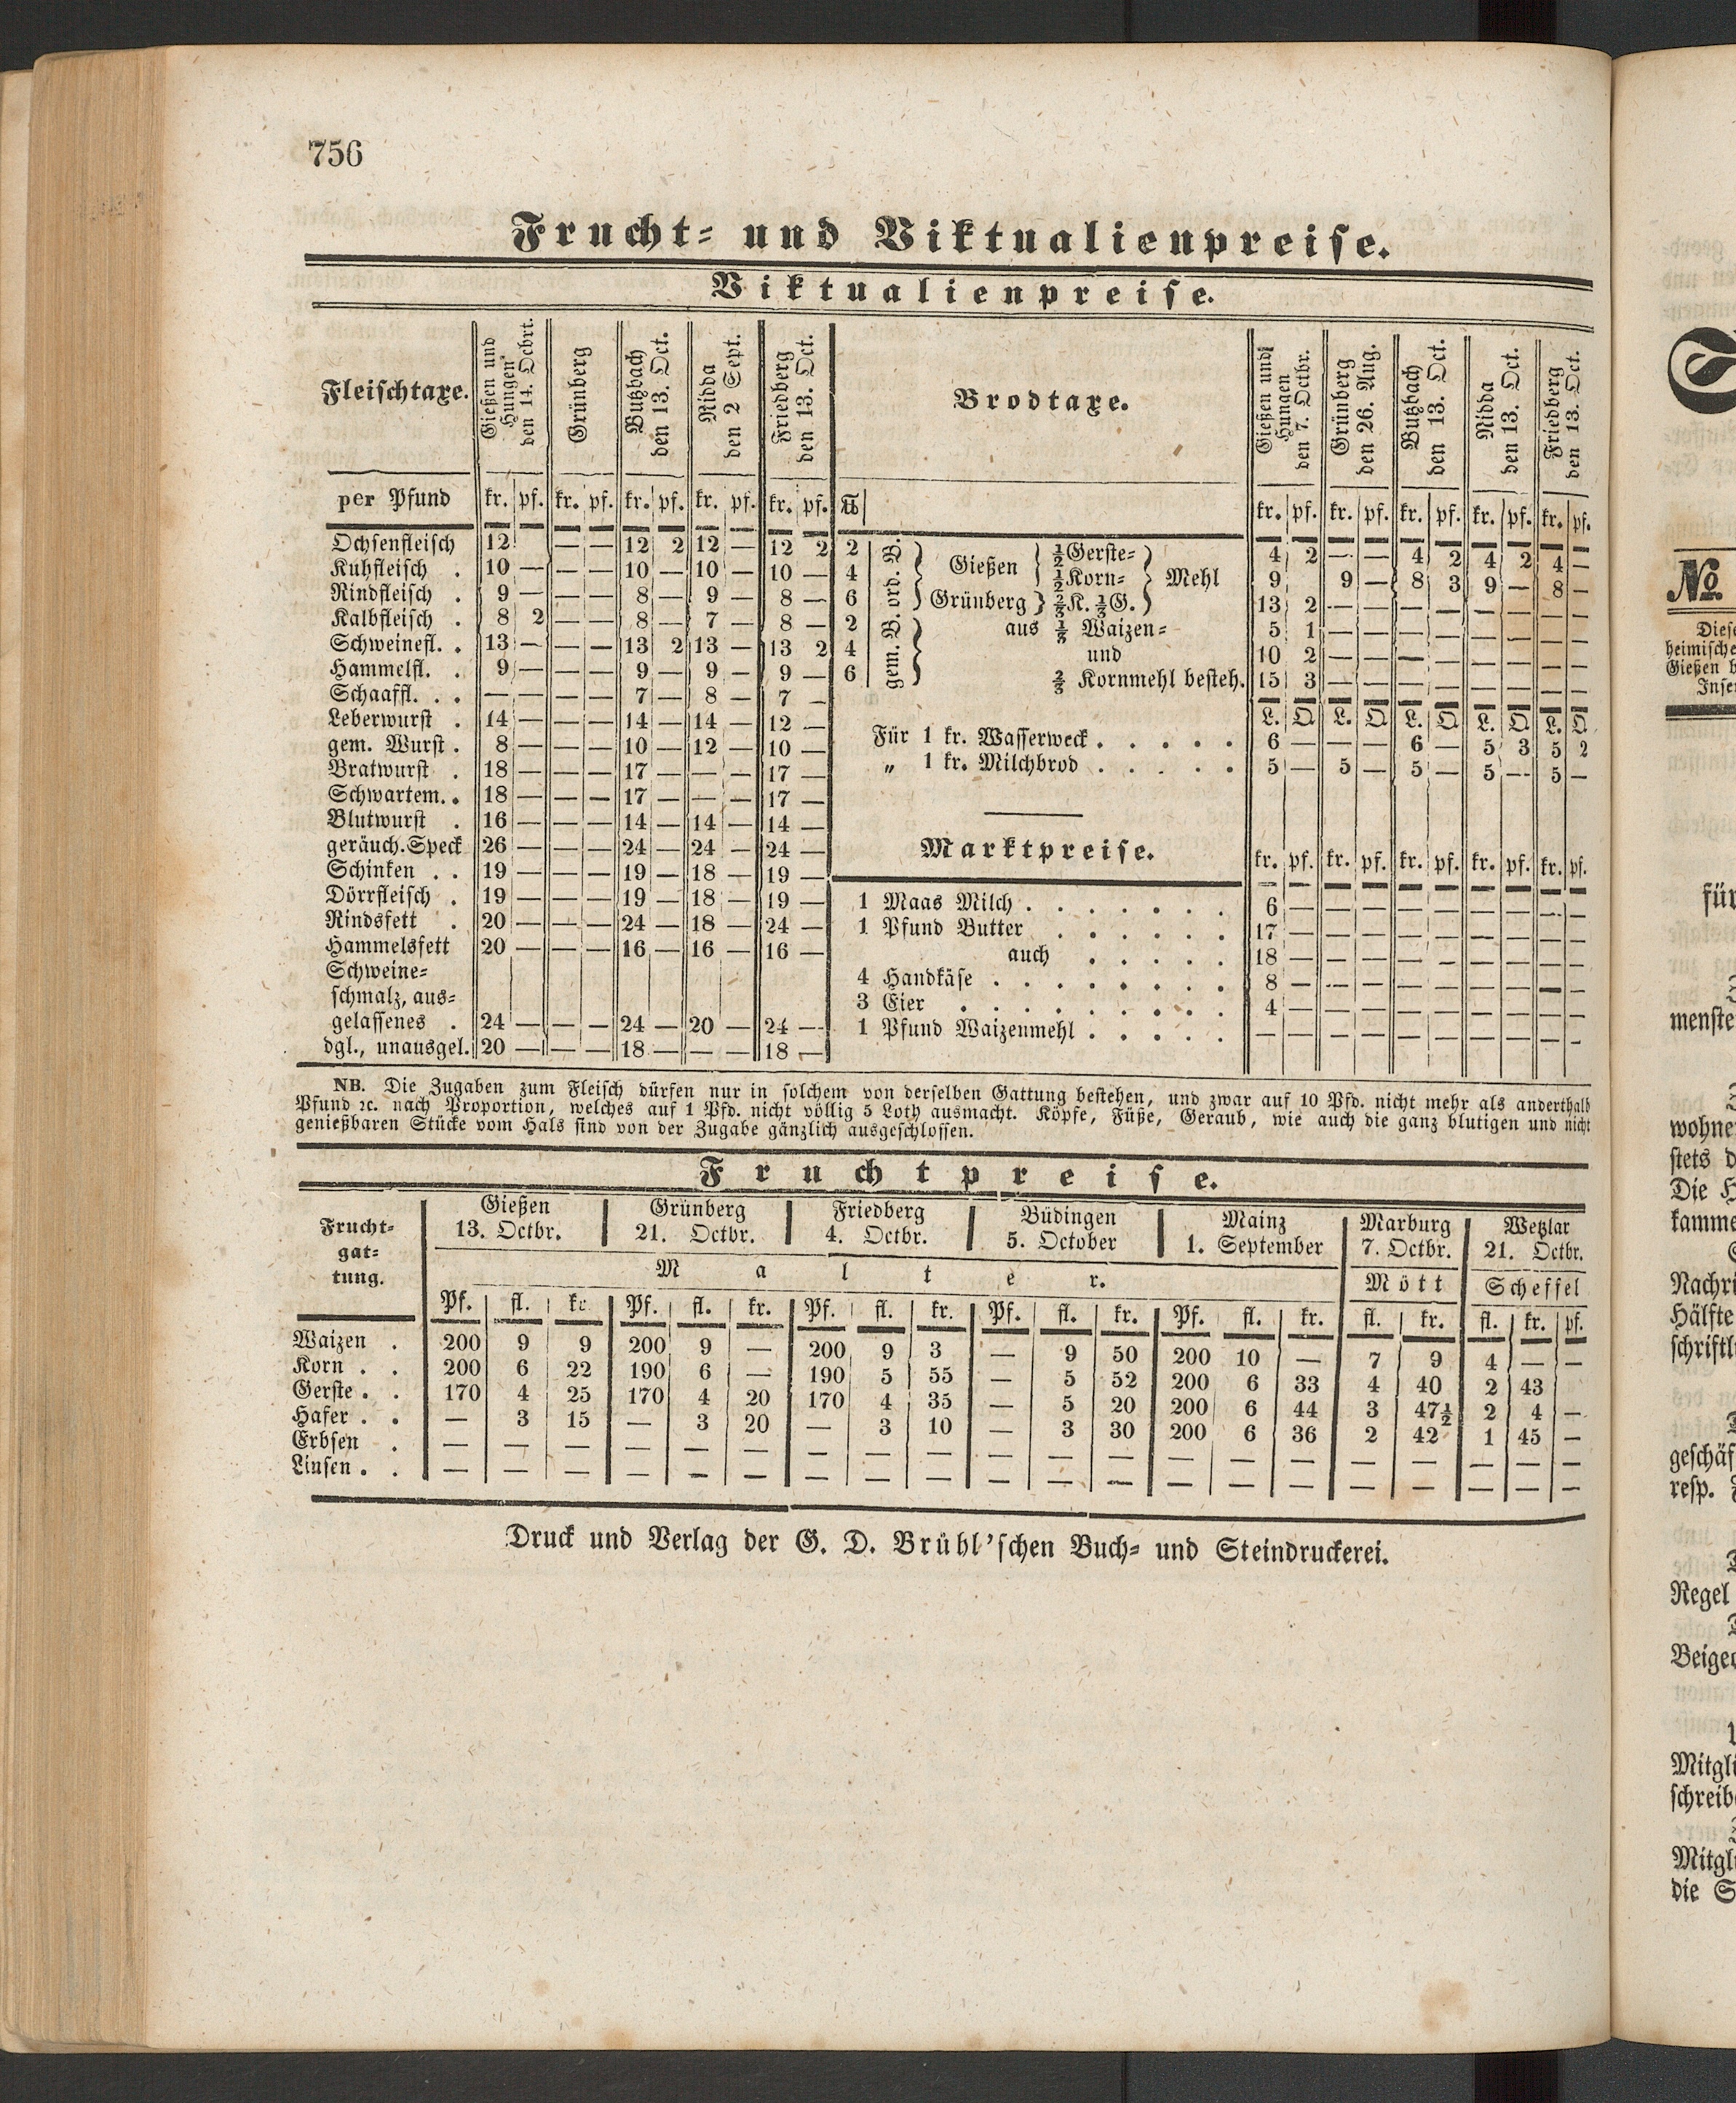 756
Frucht- und Viktualienpreise.
Viktualienpreise.
Fleischtaxe. Gießen und Hungen den 14. Ocbrt. Grünberg Butzbach den 13. Oct. Nidda den 2 Sept. Friedberg den 13. Oct.
per Pfund kr. pf. kr. pf. kr. pf. kr. pf. kr. pf.
Ochsenfleisch 12 — — 12 2 12 — 12 2
Kuhfleisch . 10 — — — 10 — 10 — 10 —
Rindfleisch . 9 — — — 8 — 9 — 8 —
Kalbfleisch . 8 2 — — 8 — 7 — 8 —
Schweinefl. . 13 — — — 13 2 13 — 13 2
Hammelfl. . 9 — — — 9 — 9 — 9 —
Schaaffl. . . — — — — 7 — 8 — 7 —
Leberwurst . 14 — — — 14 — 14 — 12 —
gem. Wurst . 8 — — — 10 — 12 — 10 —
Bratwurst . 18 — — — 17 — — — 17 —
Schwartem. . 18 — — — 17 — — — 17 —
Blutwurst . 16 — — — 14 — 14 — 14 —
geräuch. Speck 26 — — — 24 — 24 — 24 —
Schinken . . 19 — — — 19 — 18 — 19 —
Dörrfleisch . 19 — — — 19 — 18 — 19 —
Rindsfett . 20 — — — 24 — 18 — 24 —
Hammelsfett 20 — — — 16 — 16 — 16 —
Schweine-
schmalz, aus-
gelassenes . 24 — — — 24 — 20 — 24 —
dgl., unausgel. 20 — — — 18 — — — 18 —
Brodtaxe. Gießen und Hungen den 7. Octbr. Grünberg den 26. Aug. Butzbach den 13. Oct. Nidda den 13. Oct. Friedberg den 13. Oct.
℔ kr. pf. kr. pf. kr. pf. kr. pf. kr. pf.
2 ord. B. Gießen ½ Gerste- 4 2 — — 4 2 4 2 4 —
4 ½ Korn- Mehl 9 9 — 8 3 9 — 8 —
6 Grünberg ⅔ K. ⅓ G. 13 2 — — — — — — — —
2 gem. B. aus ⅓ Waizen- 5 1 — — — — — — — —
4 und 10 2 — — — — — — — —
6 ⅔ Kornmehl besteh. 15 3 — — — — — — — —
L. Q L. Q L. Q L. Q L. Q
Für 1 kr. Wasserweck . . . . . 6 — — — 6 — 5 3 5 2
„ 1 kr. Milchbrod . . . . . 5 — 5 — 5 — 5 — 5 —
Marktpreise. kr. pf. kr. pf. kr. pf. kr. pf. kr. pf.
1 Maas Milch . . . . . . . 6 — — — — — — — — —
1 Pfund Butter . . . . . . 17 — — — — — — — — —
auch . . . . . 18 — — — — — — — — —
4 Handkäse . . . . . . . . 8 — — — — — — — — —
3 Eier . . . . . . . . . 4 — — — — — — — — —
1 Pfund Waizenmehl . . . . . — — — — — — — — — —
NB. Die Zugaben zum Fleisch dürfen nur in solchem von derselben Gattung bestehen, und zwar auf 10 Pfd. nicht mehr als anderthalb
Pfund ꝛc. nach Proportion, welches auf 1 Pfd. nicht völlig 5 Loth ausmacht. Köpfe, Füße, Geraub, wie auch die ganz blutigen und nicht
genießbaren Stücke vom Hals sind von der Zugabe gänzlich ausgeschlossen.
Fruchtpreise.
Frucht-
gat-
tung.
Gießen 13. Octbr. Grünberg 21. Octbr. Friedberg 4. Octbr. Büdingen 5. October Mainz 1. September Marburg 7. Octbr. Wetzlar 21. Octbr.
Malter. Mött Scheffel
Pf. fl. kr Pf. fl. kr. Pf. fl. kr. Pf. fl. kr. Pf. fl. kr. fl. kr. fl. kr. pf.
Waizen . 200 9 9 200 9 — 200 9 3 — 9 50 200 10 — 7 9 4 — —
Korn . . 200 6 22 190 6 — 190 5 55 — 5 52 200 6 33 4 40 2 43
Gerste . . 170 4 25 170 4 20 170 4 35 — 5 20 200 6 44 3 47½ 2 4 —
Hafer . . — 3 15 — 3 20 — 3 10 — 3 30 200 6 36 2 42 1 45 —
Erbsen . — — — — — — — — — — — — — — — — — — — —
Linsen . . — — — — — — — — — — — — — — — — — — — —
Druck und Verlag der G. D. Brühl'schen Buch- und Steindruckerei.
№
Diese
heimische
Gießen
für
menste
wohne
stets
Die
kamme
Nachri
Hälfte
schriftl
geschäf
resp.
Regel
Beigeo
Mitgli
schreib
Mitgl
die